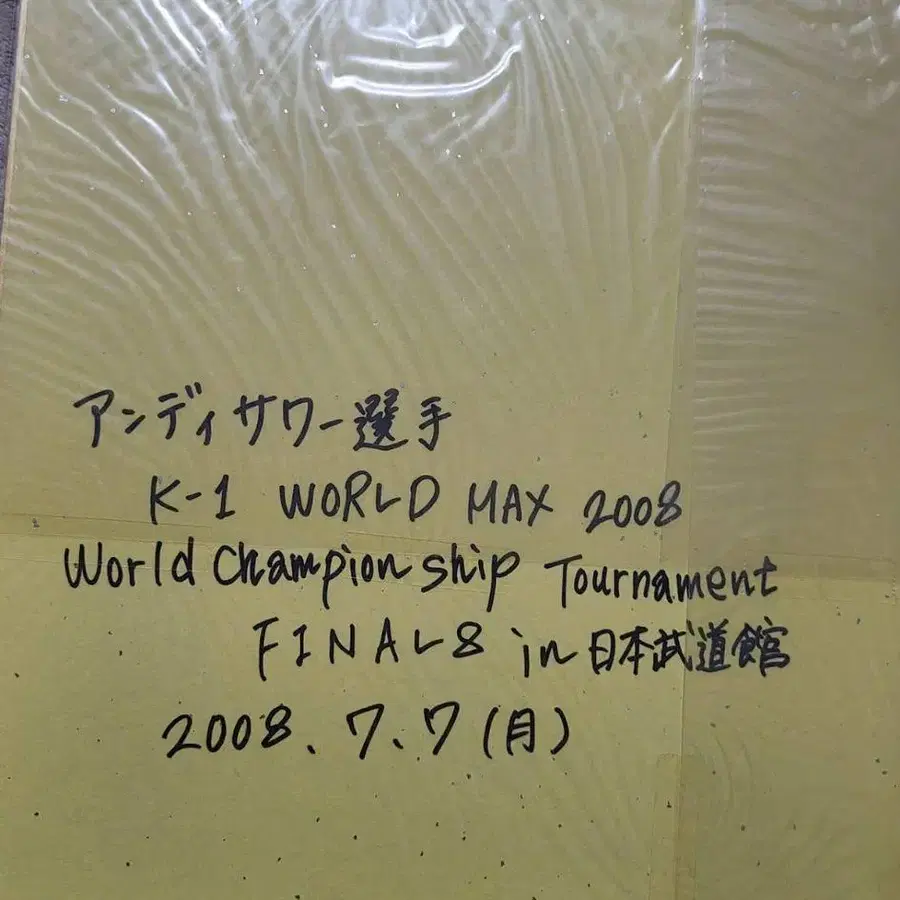 アンディサワー選手
K-1 WORLD MAX 2008
World Championship Tournament
FINAL8 in 日本武道館
2008.7.7(月)